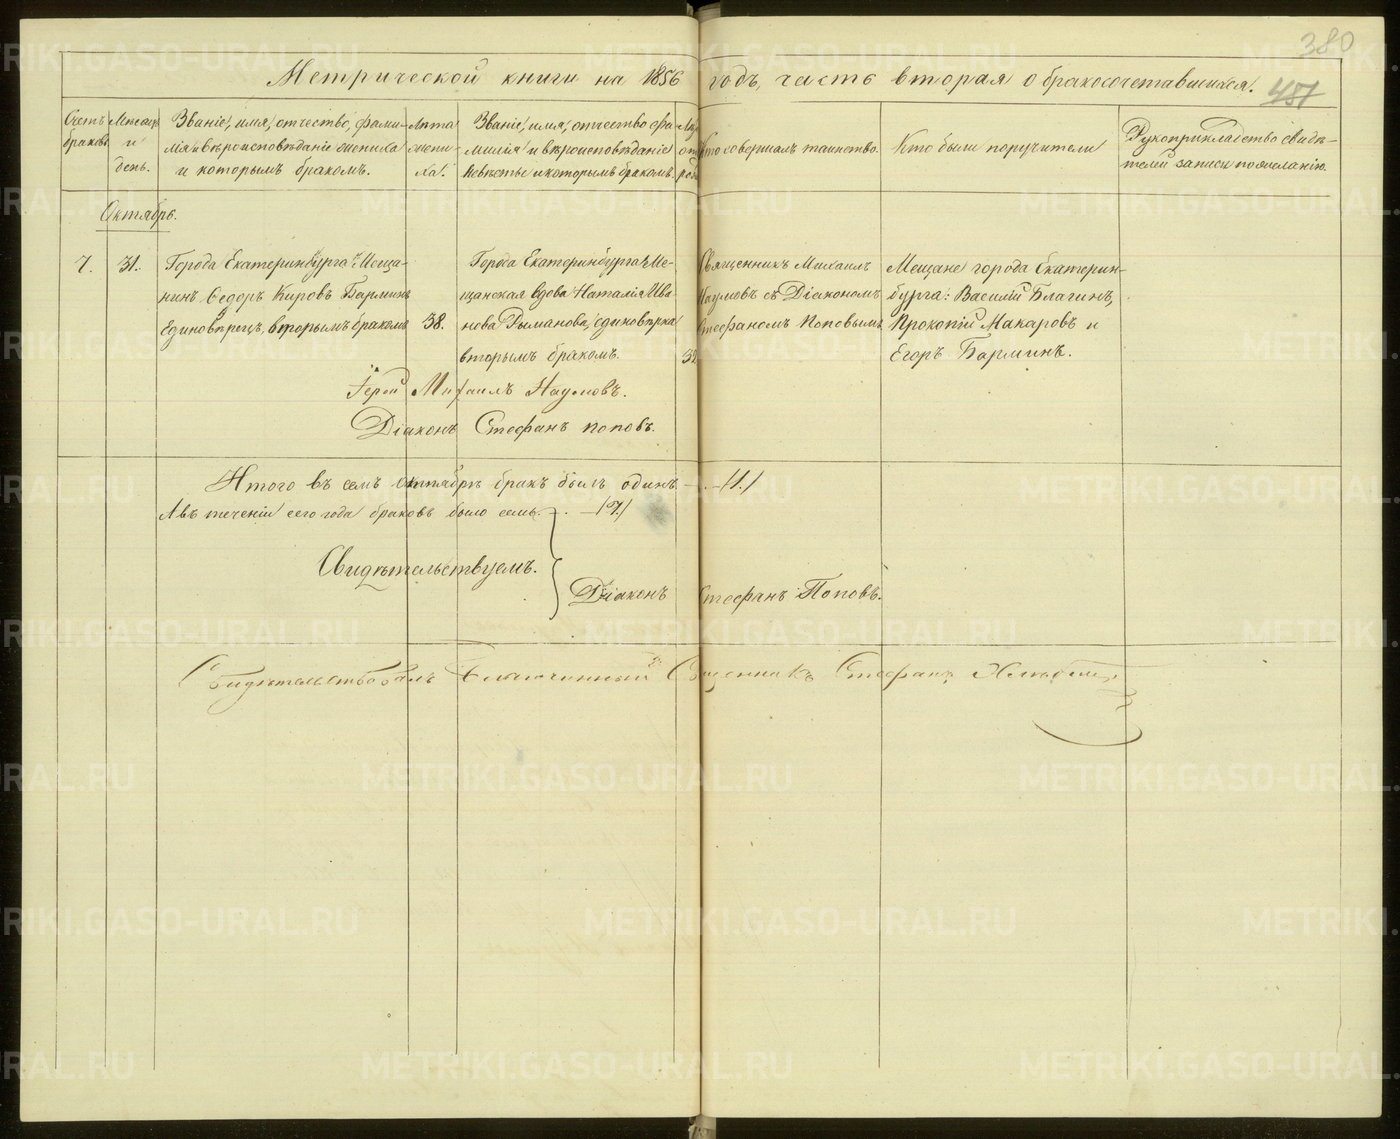 380
Метрической книги на 1856 годъ, часть вторая о бракосочетавшихся.
457
Счетъ браковъ.
Месяцъ и день.
Званіе, имя, отчество, фами-
лія и вѣроисповѣданіе жениха
и которымъ бракомъ.
Лѣта
жени-
ха.
Званіе, имя, отчество, фа-
милія и вѣроисповѣданіе
невѣсты и которымъ бракомъ.
Кто совершалъ таинство.
Кто были поручители
Рукоприкладство свидѣ-
телей записи по желанію.
Октябрь.
7.
31.
Города Екатеринбурга Меща-
нинъ Ѳедоръ Кировъ Барминъ
Единовѣрецъ, вторымъ бракомъ
38.
Города Екатеринбурга Ме-
щанская вдова Наталія Ива-
нова Рыманова, единовѣрка
вторымъ бракомъ.
32
Священникъ Михаилъ
Наумовъ съ Діакономъ
Стефаномъ Поповымъ
Мещане города Екатерин-
бурга: Василій Благинъ,
Прокопій Макаровъ и
Егоръ Барминъ.
Іерей Михаилъ Наумовъ.
Діаконъ Стефанъ Поповъ.
Итого въ семъ октябрѣ бракъ былъ одинъ. — . — /1./
А въ теченіи сего года браковъ было семь. — . — /7./
Свидѣтельствуемъ.
Діаконъ Стефанъ Поповъ.
Свидѣтельствовалъ Благочинный Священникъ Стефанъ
METRIKI.GASO-URAL.RU